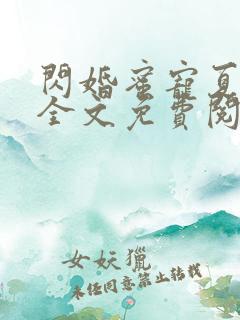 閃婚蜜寵夏
全文免費閱
女妖獵
未經同意禁止轉載